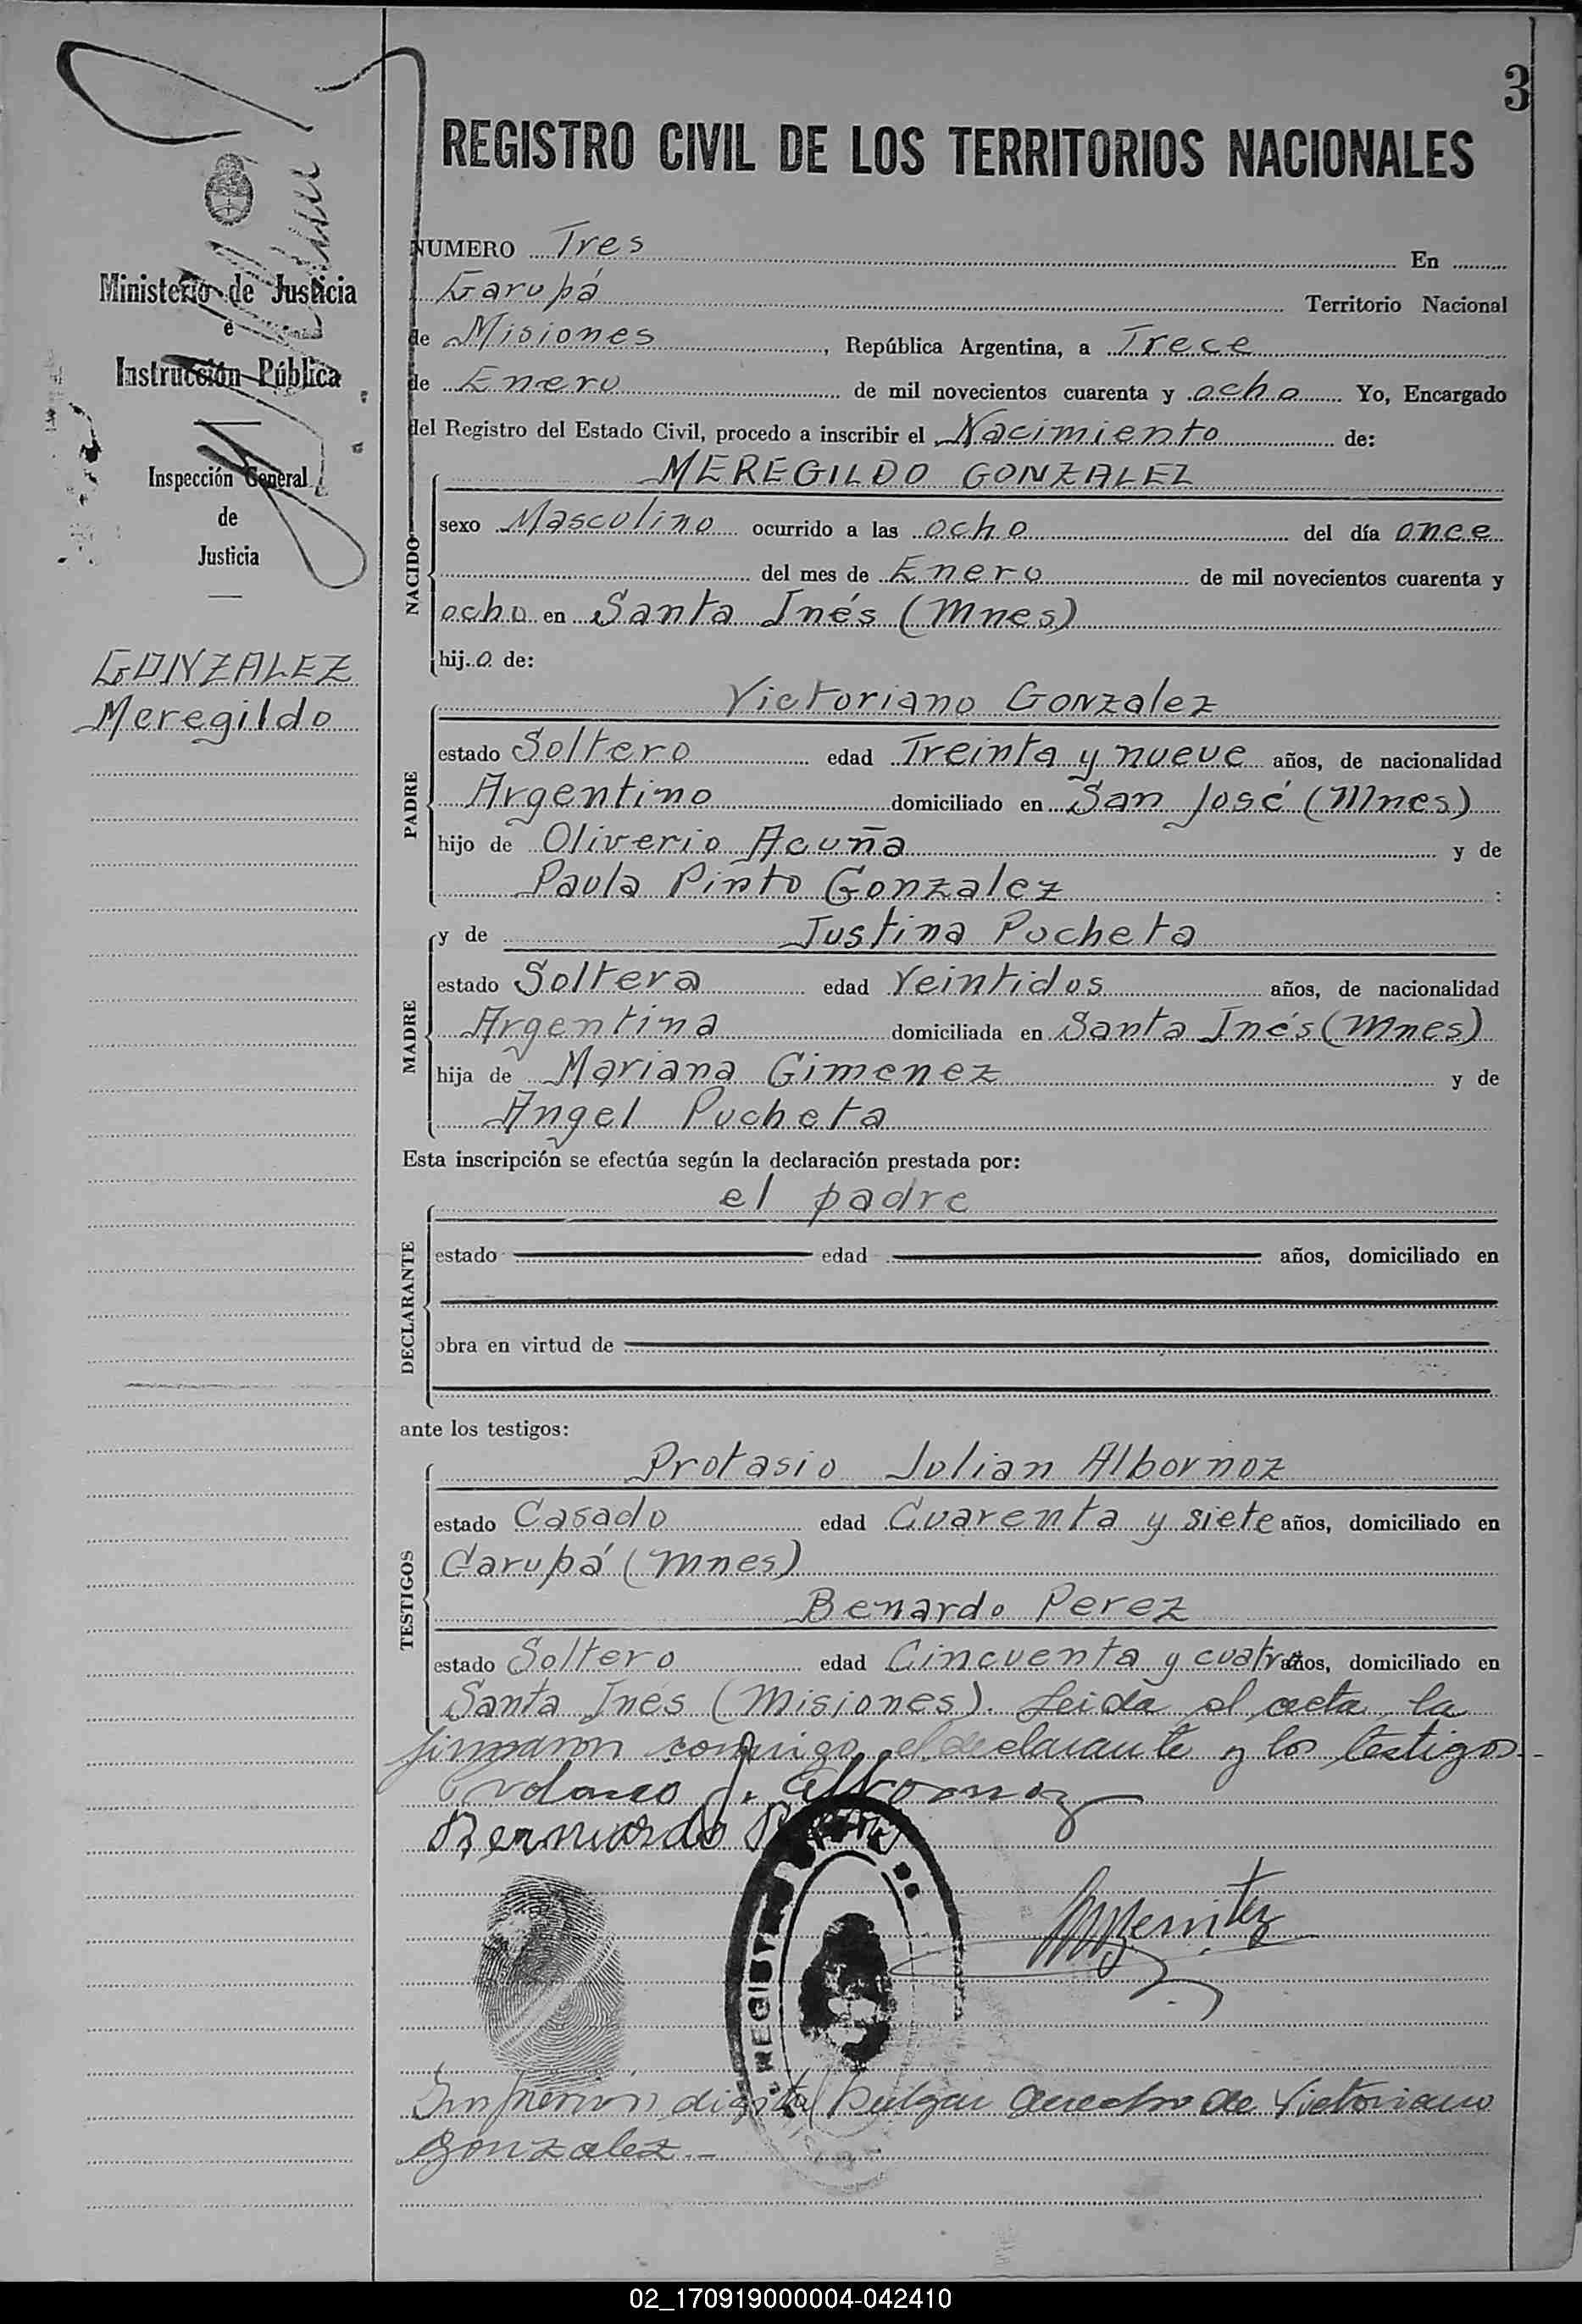 3
REGISTRO CIVIL DE LOS TERRITORIOS NACIONALES
Ministerio de Justicia
e
Instrucción Pública
Inspección General
de
Justicia
GONZALEZ
Meregildo
NUMERO Tres En
Garupá Territorio Nacional
de Misiones, República Argentina, a Trece
de Enero de mil novecientos cuarenta y ocho Yo, Encargado
del Registro del Estado Civil, procedo a inscribir el Nacimiento de:
NACIDO
MEREGILDO GONZALEZ
sexo Masculino ocurrido a las ocho del día once
del mes de Enero de mil novecientos cuarenta y
ocho en Santa Inés (Mnes)
hijo de:
PADRE
Victoriano Gonzalez
estado Soltero edad Treinta y nueve años, de nacionalidad
Argentino domiciliado en San José (Mnes)
hijo de Oliverio Acuña y de
Paula Pinto Gonzalez :
MADRE
y de Justina Pucheta
estado Soltera edad Veintidos años, de nacionalidad
Argentina domiciliada en Santa Inés (Mnes)
hija de Mariana Gimenez y de
Angel Pucheta
Esta inscripción se efectúa según la declaración prestada por:
DECLARANTE
el padre
estado edad años, domiciliado en
obra en virtud de
ante los testigos:
TESTIGOS
Protasio Julian Albornoz
estado Casado edad Cuarenta y siete años, domiciliado en
Garupá (Mnes)
Benardo Perez
estado Soltero edad Cincuenta y cuatro años, domiciliado en
Santa Inés (Misiones). Leida el acta la
firmaron conmigo el declarante y los testigos.-
Protasio J. Albornoz
Bernardo Perez
REGISTRO
DE
Benitez
Impresión digital pulgar derecho de Victoriano
Gonzalez.-
02_170919000004-042410